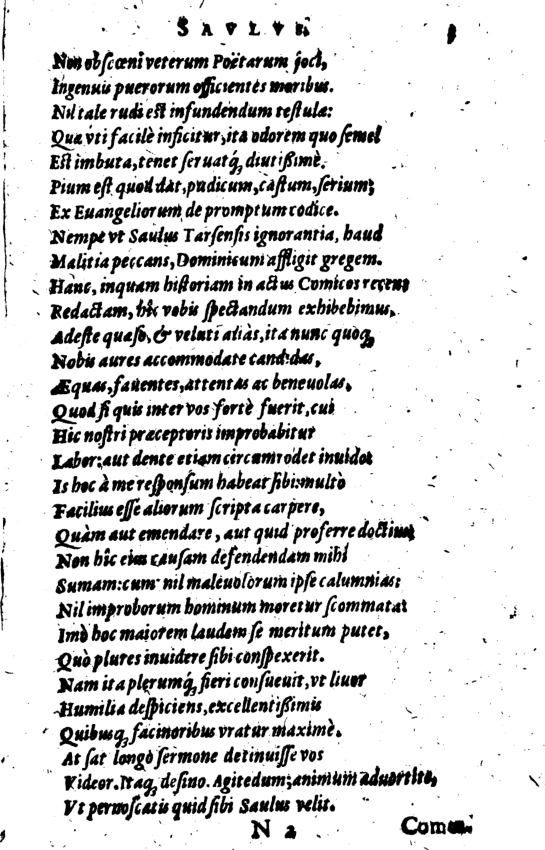 SAVLVS.
Non obscœni veterum Poëtarum joci,
Ingenuis puerorum officientes moribus.
Nil tale rudi est infundendum testulæ:
Quæ vti facilè inficitur, ita odorem quo semel
Est imbuta, tenet seruatq́; diutißimè.
Pium est quod dat, pudicum, castum, serium;
Ex Euangeliorum depromptum codice.
Nempe vt Saulus Tarsensis ignorantia, haud
Malitia peccans, Dominicum affligit gregem.
Hanc, inquam historiam in actus Comicos recens
Redactam, hîc vobis spectandum exhibebimus,
Adeste quæso, & veluti aliàs, ita nunc quoq́;
Nobis aures accommodate candidas,
Æquas, fauentes, attentas ac beneuolas,
Quod si quis inter vos fortè fuerit, cui
Hic nostri præceptoris improbabitur
Labor: aut dente etiam circumrodet inuidos
Is hoc à me responsum habeat sibi: multò
Facilius esse aliorum scripta carpere,
Quàm aut emendare, aut quid proferre doctius;
Non hîc eius causam defendendam mihi
Sumam: cum nil maleuolorum ipse calumnias:
Nil improborum hominum moretur scommata:
Imò hoc maiorem laudem se meritum putet,
Quò plures inuidere sibi conspexerit.
Nam ita plerumq́; fieri consueuit, vt liuor
Humilia despiciens, excellentißimis
Quibusq́; facinoribus vratur maximè.
At sat longo sermone detinuisse vos
Videor. Itaq́; desino. Agitedum; animum aduortite,
Vt pernoscatis quid sibi Saulus velit.
N 2